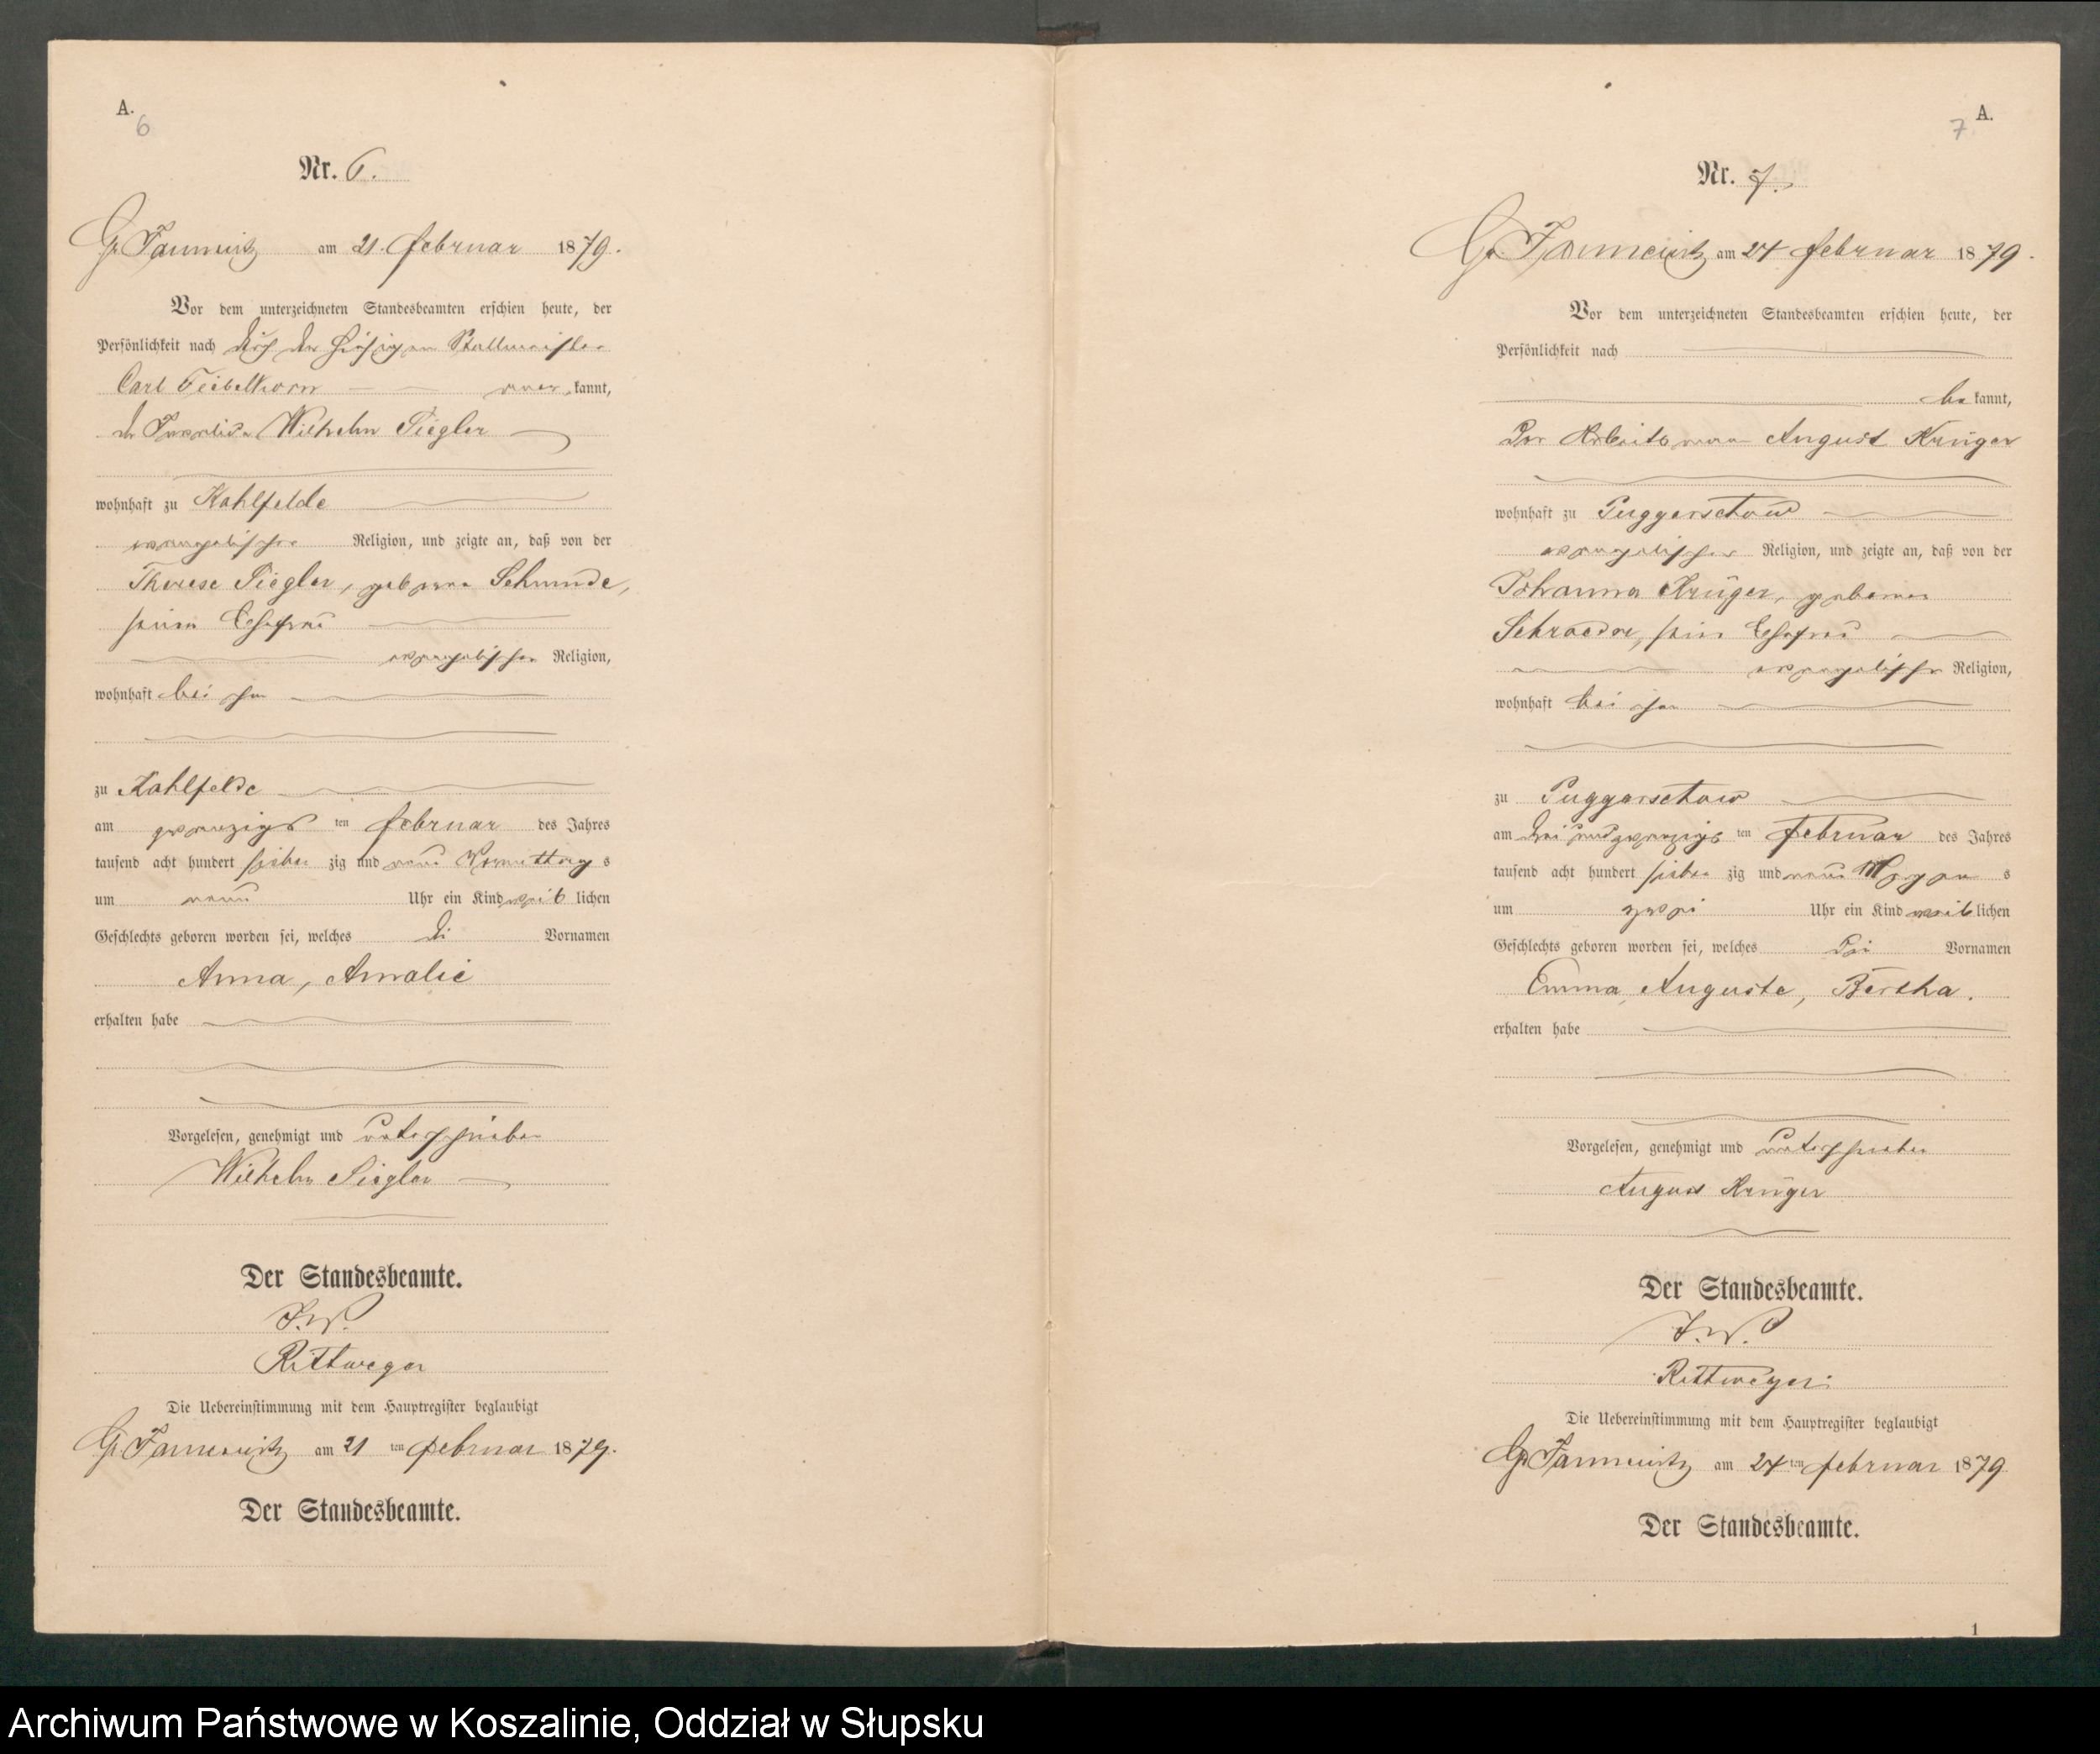 A.
6
Nr. 6.
Gr Jannewitz am 21. Februar 1879.
Vor dem unterzeichneten Standesbeamten erschien heute, der
Persönlichkeit nach durch den hiesigen
Carl kannt,
der Wilhelm Siegler
wohnhaft zu Kahlfelde
evangelischer Religion, und zeigte an, daß von der
Therese Siegler, geborene Schmude,
seiner Ehefrau
evangelischer Religion,
wohnhaft bei ihm
zu Kahlfelde
am zwanzigs ten Februar des Jahres
tausend acht hundert sieben zig und neun Vormittag s
um neun Uhr ein Kind weib lichen
Geschlechts geboren worden sei, welches die Vornamen
Anna, Amalie
erhalten habe
Vorgelesen, genehmigt und unterschrieben
Wilhelm Siegler
Der Standesbeamte.
J.V.
Rittweger
Die Uebereinstimmung mit dem Hauptregister beglaubigt
Gr Jannewitz am 21 ten Februar 1879.
Der Standesbeamte.
A.
7
Nr. 7.
Gr. Jannewitz am 24 Februar 1879.
Vor dem unterzeichneten Standesbeamten erschien heute, der
Persönlichkeit nach
be kannt,
Der Arbeitsmann August Krüger
wohnhaft zu Puggerschow
evangelischer Religion, und zeigte an, daß von der
Johanna Krüger, geborene
Schroeder, seiner Ehefrau
evangelischer Religion,
wohnhaft bei ihm
zu Puggerschow
am drei und zwanzigs ten Februar des Jahres
tausend acht hundert sieben zig und neun Morgen s
um zwei Uhr ein Kind weib lichen
Geschlechts geboren worden sei, welches die Vornamen
Emma, Auguste, Bertha.
erhalten habe
Vorgelesen, genehmigt und unterschrieben
August Krüger
Der Standesbeamte.
J.V.
Rittweger
Die Uebereinstimmung mit dem Hauptregister beglaubigt
Gr Jannewitz am 24 ten Februar 1879
Der Standesbeamte.
1
Archiwum Państwowe w Koszalinie, Oddział w Słupsku